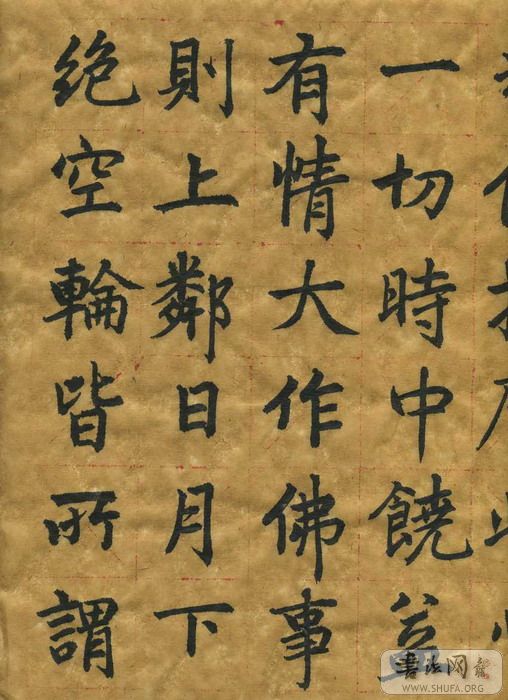 一切時中饒益
有情大作佛事
則上鄰日月下
絶空輪皆所謂
書法网
WWW.SHUFA.ORG